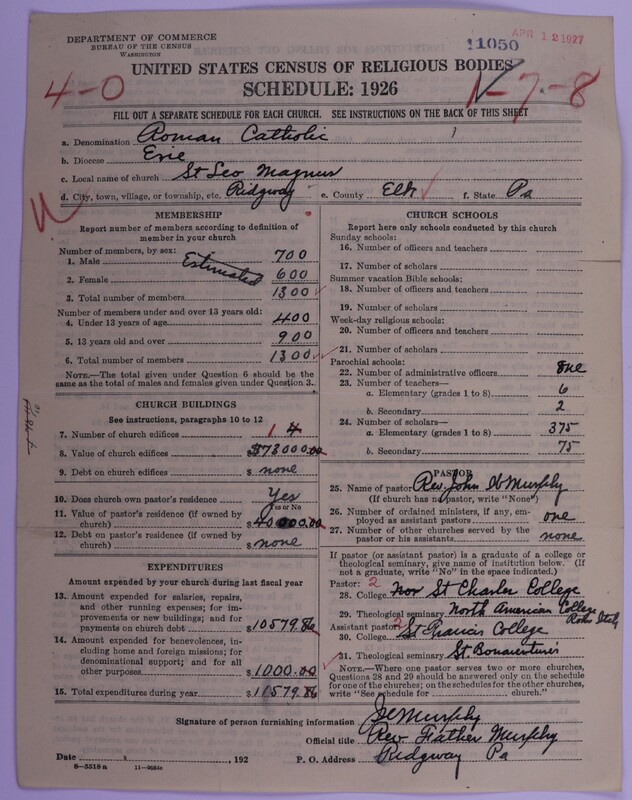 DEPARTMENT OF COMMERCE
BUREAU OF THE CENSUS
WASHINGTON
11050
APR 12 1927
UNITED STATES CENSUS OF RELIGIOUS BODIES
SCHEDULE: 1926
4-0
1-7-8
FILL OUT A SEPARATE SCHEDULE FOR EACH CHURCH. SEE INSTRUCTIONS ON THE BACK OF THIS SHEET
a. Denomination Roman Catholic
b. Diocese Erie
c. Local name of church St Leo Magnus
d. City, town, village, or township, etc. Ridgway e. County Elk f. State Pa
MEMBERSHIP
Report number of members according to definition of member in your church
Number of members, by sex:
1. Male 700
Estimated
2. Female 600
3. Total number of members 1300
Number of members under and over 13 years old:
4. Under 13 years of age 400
5. 13 years old and over 900
6. Total number of members 1300
NOTE.—The total given under Question 6 should be
same as the total of males and females given under Question 3.
CHURCH BUILDINGS
See instructions, paragraphs 10 to 12
7. Number of church edifices 1 4
8. Value of church edifices $73000.00
9. Debt on church edifices $ none
10. Does church own pastor's residence Yes
Yes or No
11. Value of pastor's residence (if owned by
church) $40000.00
12. Debt on pastor's residence (if owned by
church) $ none
EXPENDITURES
Amount expended by your church during last fiscal year
13. Amount expended for salaries, repairs,
and other running expenses; for im-
provements or new buildings; and for
payments on church debt $10579.86
14. Amount expended for benevolences,
including home and foreign missions; for
denominational support; and for all
other purposes $1000.00
15. Total expenditures during year $11579.86
CHURCH SCHOOLS
Report here only schools conducted by this church
Sunday schools:
16. Number of officers and teachers
17. Number of scholars
Summer vacation Bible schools:
18. Number of officers and teachers
19. Number of scholars
Week-day religious schools:
20. Number of officers and teachers
21. Number of scholars
Parochial schools:
22. Number of administrative officers one
23. Number of teachers—
a. Elementary (grades 1 to 8) 6
b. Secondary 2
24. Number of scholars—
a. Elementary (grades 1 to 8) 375
b. Secondary 75
PASTOR
25. Name of pastor Rev. John W Murphy
(If church has no pastor, write "None")
26. Number of ordained ministers, if any, em-
ployed as assistant pastors one
27. Number of other churches served by the
pastor or his assistants none
If pastor (or assistant pastor) is a graduate of a college or
theological seminary, give name of institution below. (If
not a graduate, write "No" in the space indicated.)
Pastor: 2
28. College St Charles College
29. Theological seminary North American College
Rome Italy
Assistant pastor: 2
30. College St Francis College
31. Theological seminary St Bonaventures
NOTE.—Where one pastor serves two or more churches,
Questions 28 and 29 should be answered only on the schedule
for one of the churches; on the schedules for the other churches,
write "See schedule for church."
Signature of person furnishing information Murphy
Official title Rev. Father Murphy
Date , 192 P. O. Address Ridgway Pa
8—5518a 11—9684c